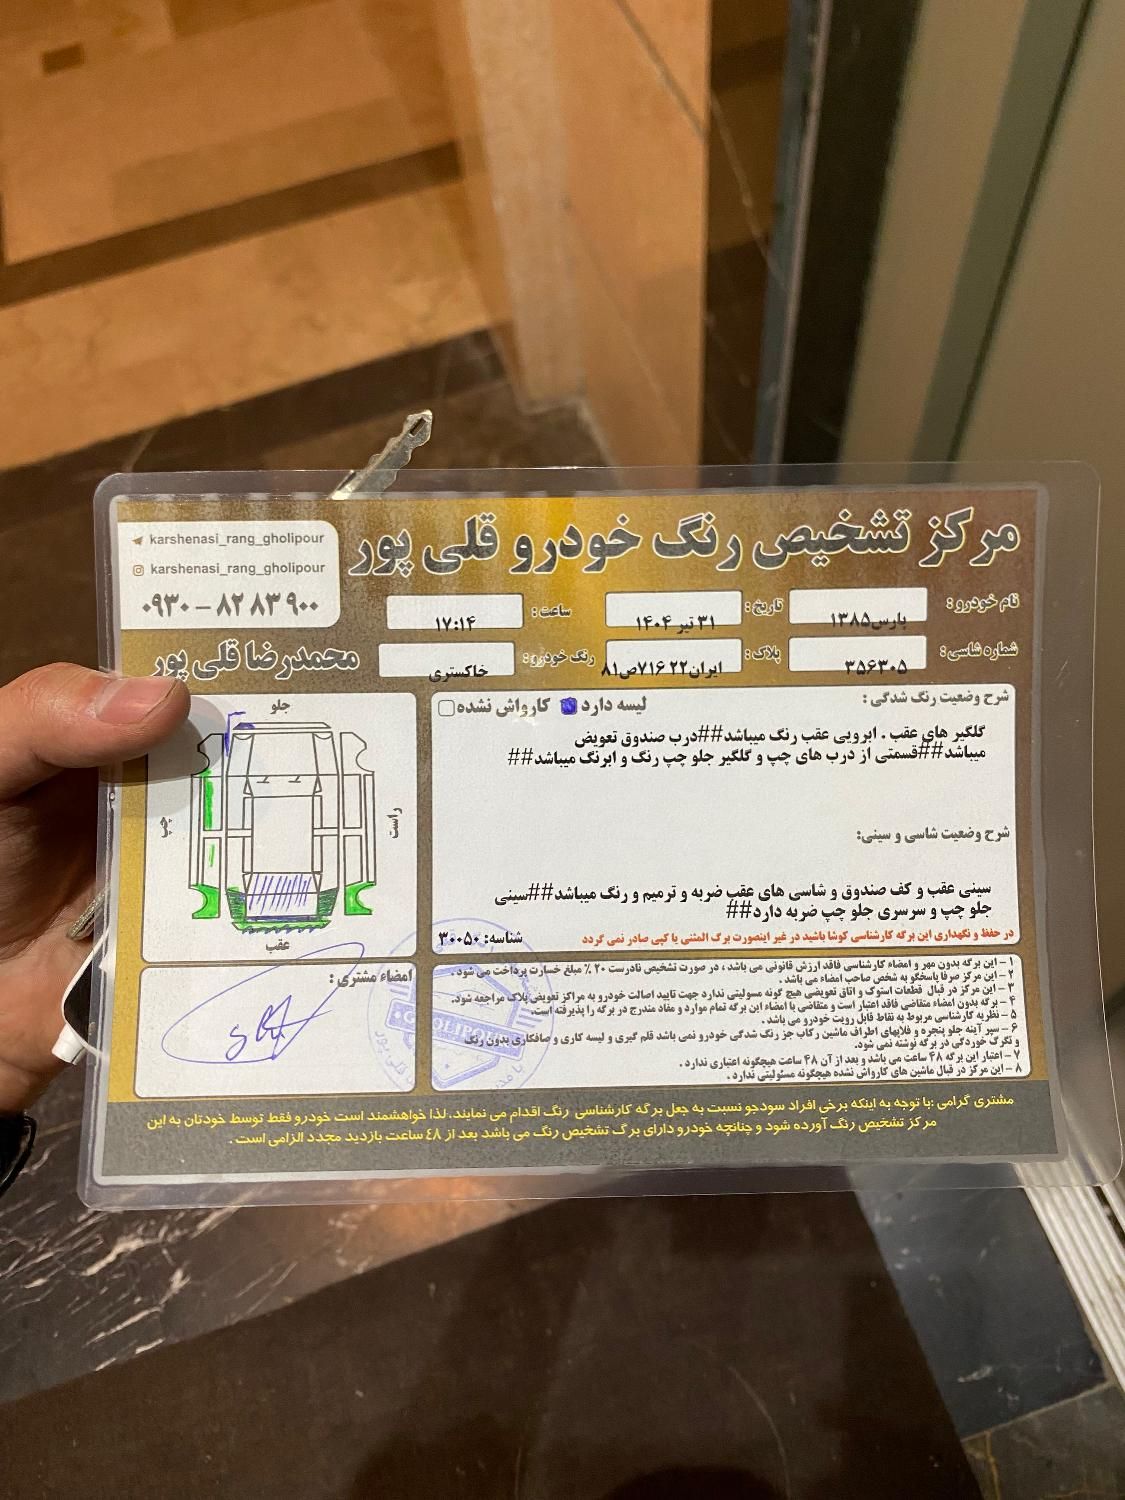 مرکز تشخیص رنگ خودرو قلی پور
karshenasi_rang_gholipour
karshenasi_rang_gholipour
۰۹۳۰ – ۸۲ ۸۳ ۹۰۰
محمدرضا قلی پور
نام خودرو : پارس۱۳۸۵ تاریخ : ۳۱ تیر ۱۴۰۴ ساعت : ۱۷:۱۴
شماره شاسی : ۳۵۶۳۰۵ پلاک : ایران۲۲ ۷۱۶ص۸۱ رنگ خودرو: خاکستری
شرح وضعیت رنگ شدگی :
لیسه دارد کارواش نشده
گلگیر های عقب . ابرویی عقب رنگ میباشد##درب صندوق تعویض
میباشد##قسمتی از درب های چپ و گلگیر جلو چپ رنگ و ابرنگ میباشد##
شرح وضعیت شاسی و سینی:
سینی عقب و کف صندوق و شاسی های عقب ضربه و ترمیم و رنگ میباشد##سینی
جلو چپ و سرسری جلو چپ ضربه دارد##
در حفظ و نگهداری این برگه کارشناسی کوشا باشید در غیر اینصورت برگ المثنی یا کپی صادر نمی گردد
شناسه: ۳۰۰۵۰
جلو
چپ
راست
عقب
امضاء مشتری :
۱ – این برگه بدون مهر و امضاء کارشناسی فاقد ارزش قانونی می باشد ، در صورت تشخیص نادرست ۲۰ ٪ مبلغ خسارت پرداخت می شود .
۲ – این مرکز صرفا پاسخگو به شخص صاحب امضاء می باشد .
۳ – این مرکز در قبال قطعات استوک و اتاق تعویضی هیچ گونه مسولیتی ندارد جهت تایید اصالت خودرو به مراکز تعویض پلاک مراجعه شود.
۴ – برگه بدون امضاء متقاضی فاقد اعتبار است و متقاضی با امضاء این برگه تمام موارد و مفاد مندرج در برگه را پذیرفته است.
۵ – نظریه کارشناسی مربوط به نقاط قابل رویت خودرو می باشد .
۶ – سپر آینه جلو پنجره و فلاپهای اطراف ماشین رکاب جز رنگ شدگی خودرو نمی باشد قلم گیری و لیسه کاری و صافکاری بدون رنگ
و تگرگ خوردگی در برگه نوشته نمی شود.
۷ – اعتبار این برگه ۴۸ ساعت می باشد و بعد از آن ۴۸ ساعت هیچگونه اعتباری ندارد .
۸ – این مرکز در قبال ماشین های کارواش نشده هیچگونه مسئولیتی ندارد .
GHOLIPOUR
مشتری گرامی :با توجه به اینکه برخی افراد سودجو نسبت به جعل برگه کارشناسی رنگ اقدام می نمایند. لذا خواهشمند است خودرو فقط توسط خودتان به این
مرکز تشخیص رنگ آورده شود و چنانچه خودرو دارای برگ تشخیص رنگ می باشد بعد از ٤٨ ساعت بازدید مجدد الزامی است .